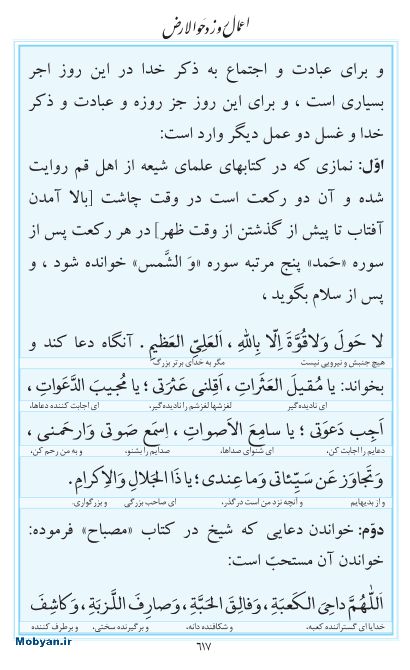 اعمال روز دحوالارض
و برای عبادت و اجتماع به ذکر خدا در این روز اجر
بسیاری است ، و برای این روز جز روزه و عبادت و ذکر
خدا و غسل دو عمل دیگر وارد است:
اوّل: نمازی که در کتابهای علمای شیعه از اهل قم روایت
شده و آن دو رکعت است در وقت چاشت [بالا آمدن
آفتاب تا پیش از گذشتن از وقت ظهر] در هر رکعت پس از
سوره «حَمد» پنج مرتبه سوره «وَ الشَّمس» خوانده شود ، و
پس از سلام بگوید ،
لا حَولَ وَلاقُوَّةَ اِلّا بِاللّٰهِ ، اَلعَلِیِّ العَظیمِ . آنگاه دعا کند و
هیچ جنبش و نیرویی نیست مگر به خدای برتر بزرگ
بخواند: یا مُقیلَ العَثَراتِ ، اَقِلنی عَثرَتی ؛ یا مُجیبَ الدَّعَواتِ ،
ای نادیده‌گیر لغزشها لغزشم را نادیده‌گیر، ای اجابت کننده دعاها،
اَجِب دَعوَتی ؛ یا سامِعَ الاَصواتِ ، اِسمَع صَوتی وَارحَمنی ،
دعایم را اجابت کن، ای شنوای صداها، صدایم را بشنو، و به من رحم کن،
وَتَجاوَز عَن سَیِّئاتی وَما عِندی ؛ یا ذَا الجَلالِ وَالاِکرامِ.
و از بدیهایم و آنچه نزد من است درگذر، ای صاحب بزرگی و بزرگواری.
دوّم: خواندن دعایی که شیخ در کتاب «مصباح» فرموده:
خواندن آن مستحبّ است:
اَللّٰهُمَّ داحِیَ الکَعبَةِ ، وَفالِقَ الحَبَّةِ ، وَصارِفَ اللَّزبَةِ ، وَکاشِفَ
خدایا ای گستراننده کعبه، و شکافنده دانه، و برگیرنده سختی، و برطرف کننده
۶۱۷
Mobyan.ir